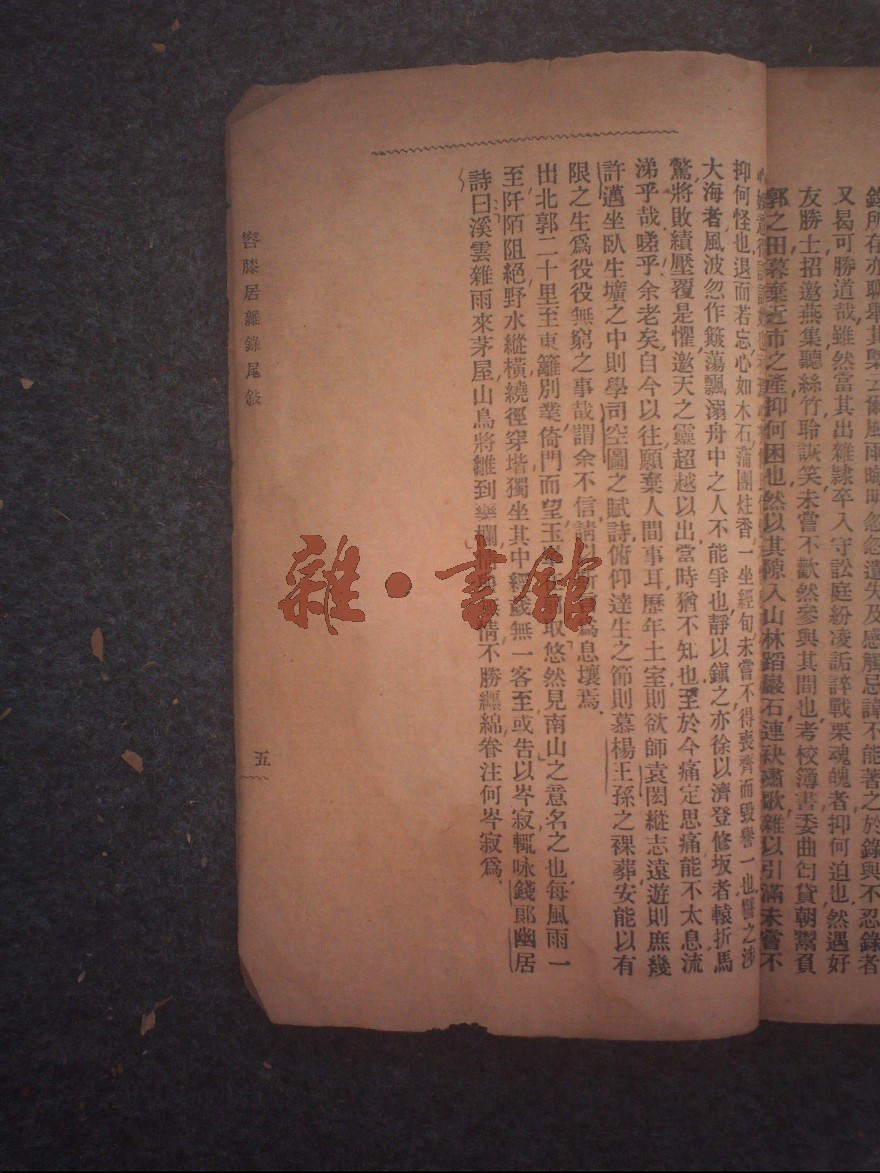 錄所存亦聊舉其槩云爾風雨晦明忽忽遺失及感觸忌諱不能著之於錄與不忍錄者
又曷可勝道哉雖然當其出雜隸卒入守訟庭紛凌詬誶戰栗魂魄者抑何迫也然遇好
友勝士招邀燕集聽絲竹聆詼笑未嘗不歡然參與其間也考校簿書委曲匄貸朝鬻負
郭之田暮棄近市之產抑何困也然以其隙入山林蹈巖石連袂嘯歌雜以引滿未嘗不
抑何怪也退而若忘心如木石蒲團炷香一坐經旬未嘗不得喪齊而毀譽一也譬之涉
大海者風波忽作簸蕩飄溺舟中之人不能爭也靜以鎮之亦徐以濟登修坂者轅折馬
驚將敗績壓覆是懼邀天之靈超越以出當時猶不知也至於今痛定思痛能不太息流
涕乎哉嗟乎余老矣自今以往願棄人間事耳歷年土室則欲師袁閎縱志遠遊則庶幾
許邁坐臥生壙之中則學司空圖之賦詩俯仰達生之節則慕楊王孫之裸葬安能以有
限之生爲役役無窮之事哉謂余不信請爲息壤焉
出北郭二十里至東籬別業倚門而望玉取悠然見南山之意名之也每風雨一
至阡陌阻絕野水縱橫繞徑穿堦獨坐其中經歲無一客至或告以岑寂輒咏錢郞幽居
詩曰溪雲雜雨來茅屋山鳥將雛到藥欄情不勝纏綿眷注何岑寂爲
容膝居雜錄尾敍
五
雜·書館